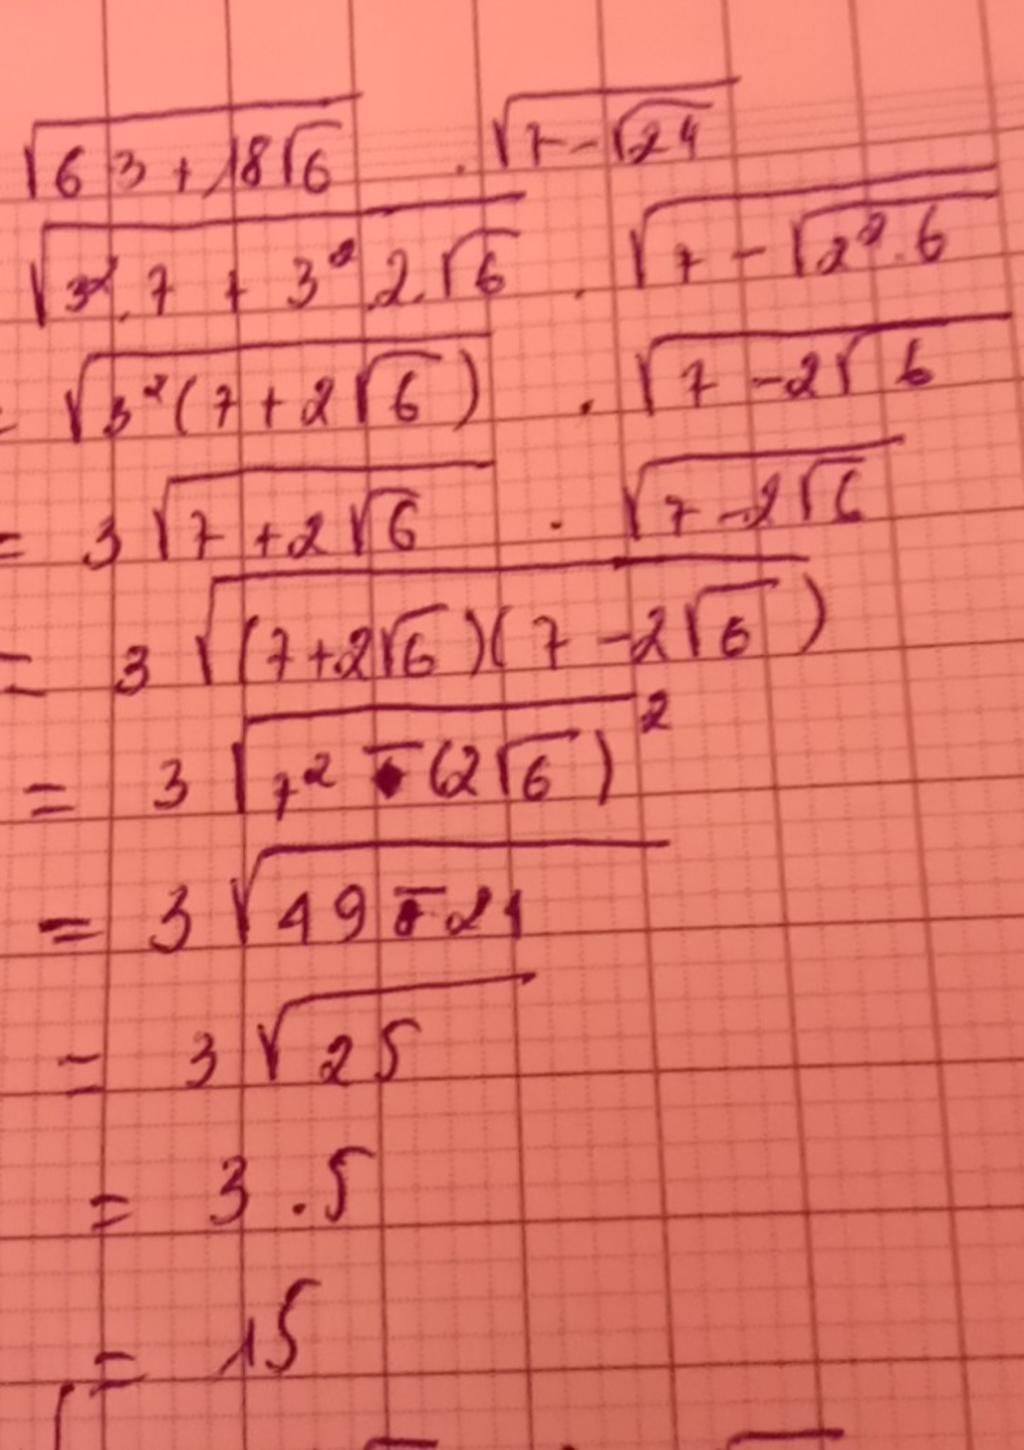 √(63 + 18√6) . √(7 - √24)
√(3². 7 + 3² . 2 . √6) . √(7 - √(2² . 6))
= √(3²(7 + 2√6)) . √(7 - 2√6)
= 3 √(7 + 2√6) . √(7 - 2√6)
= 3 √((7 + 2√6)(7 - 2√6))
= 3 √(7² - (2√6)²)
= 3 √(49 - 21)
= 3 √25
= 3 . 5
= 15